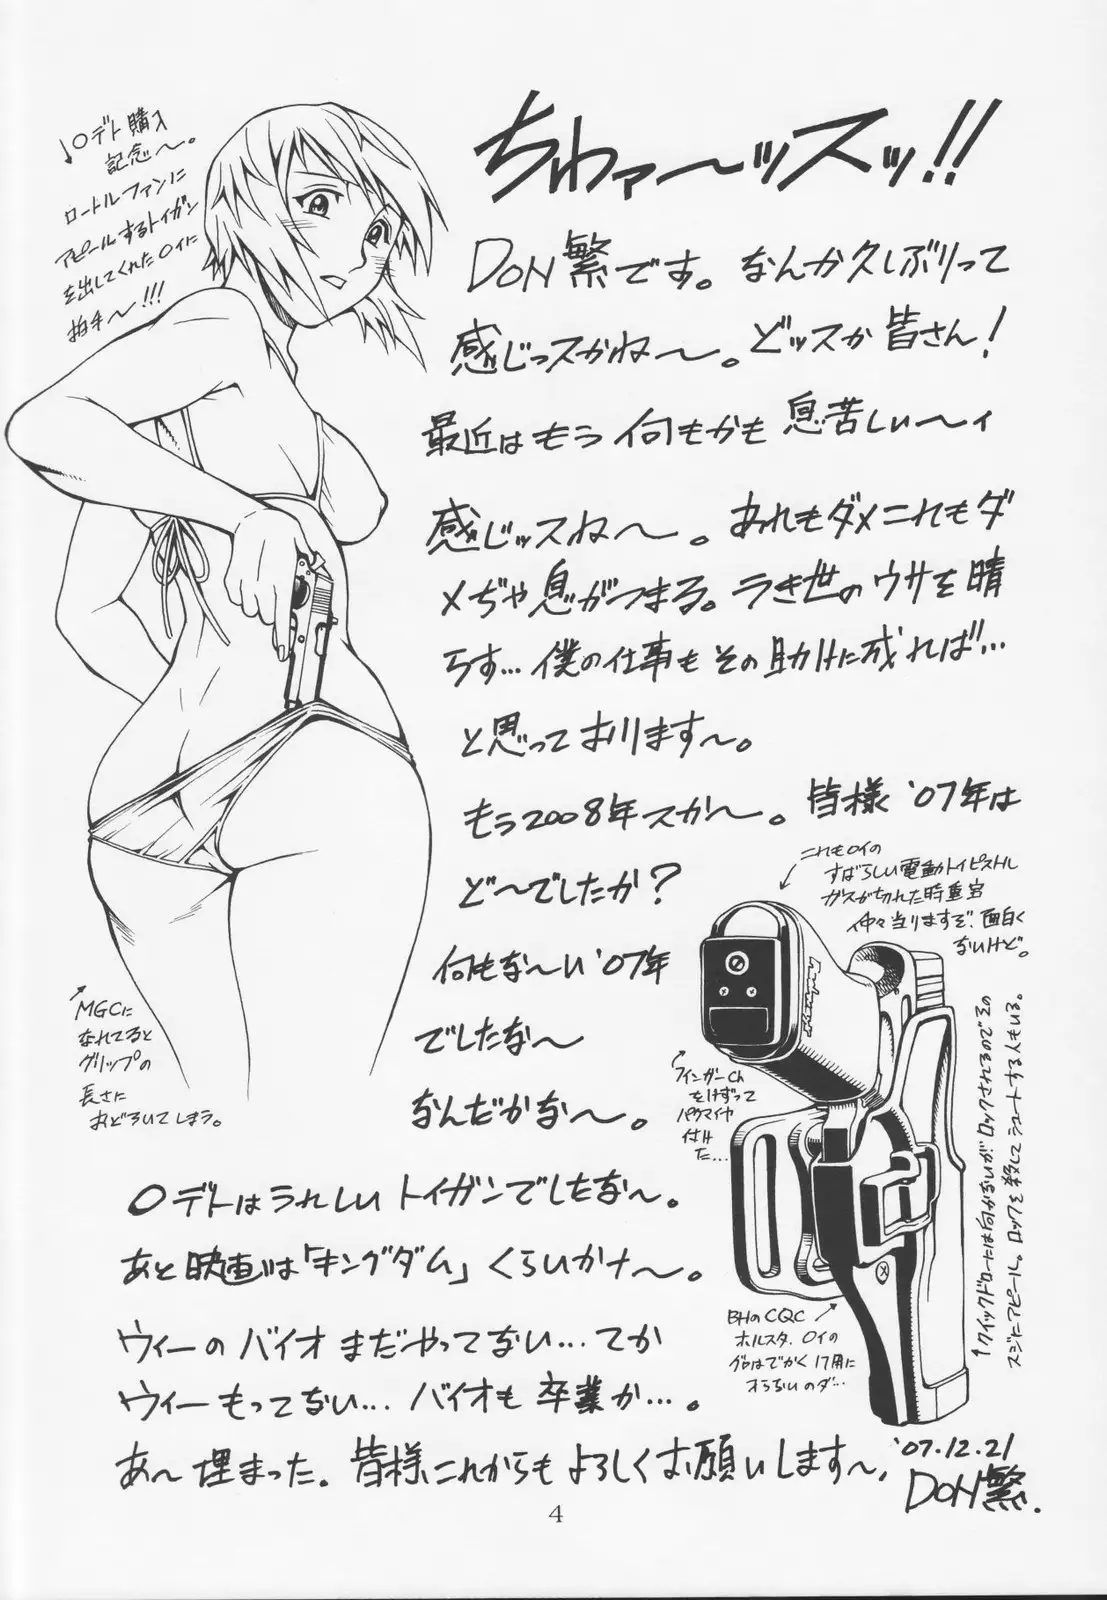 ちわァ〜ッスッ!!
↓○デト購入
記念〜。
ロートルファンに
アピールするトイガン
を出してくれた○イに
拍手〜!!!
DON繁です。なんか久しぶりって
感じっスかね〜。どッスか皆さん!
最近はもう何もかも息苦しぃ〜ィ
感じッスね〜。あれもダメこれもダ
メぢゃ息がつまる。うき世のウサを晴
らす…僕の仕事もその助けに成れば…
と思っております〜。
もう2008年スか〜。皆様'07年は
ど〜でしたか?
何もな〜い'07年
でしたな〜
なんだかな〜。
○デトはうれしいトイガンでしたな〜。
あと映画は「キングダム」くらいかナ〜。
ウィーのバイオまだやってない…てか
ウィーもってない…バイオも卒業か…。
あ〜埋まった。皆様これからもよろしくお願いします〜。
'07.12.21
DON繁.
↗MGCに
なれてると
グリップの
長さに
おどろいてしまう。
これも○イの
すばらしい電動トイピストル
ガスが切れた時重宝
仲々当りますぞ。面白く
ないけど。
フィンガーCh
をけずって
パクマイヤ
付け
た…
BHのCQC
ホルスタ。○イの
グロはでかく17用に
入らないのダ…
↑クイックドローには向かないがロックされるのでその
スジにアピール。ロックを殺してシュートする人もいる。
4